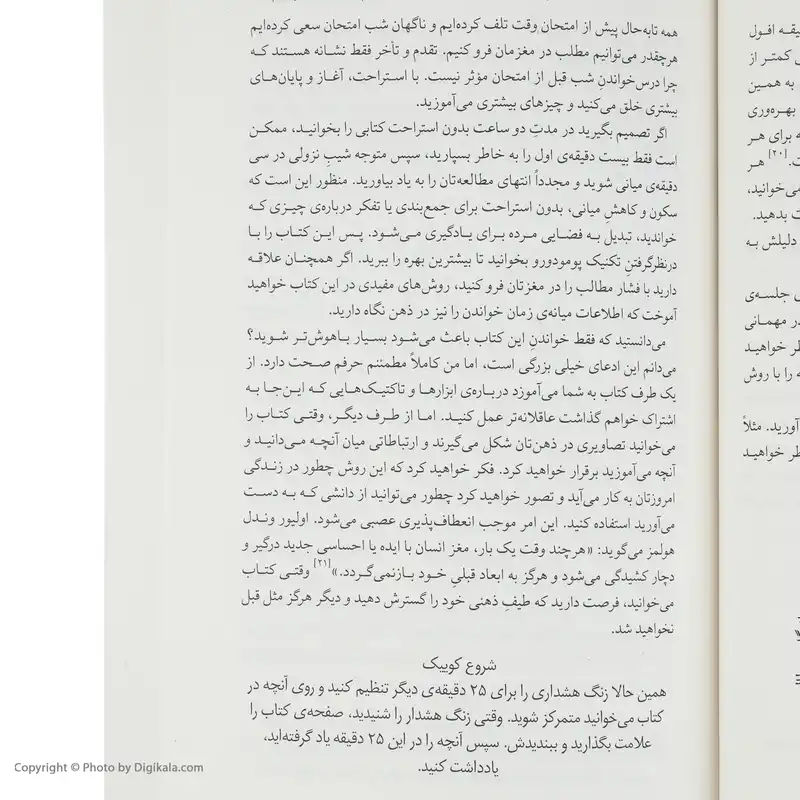 همه تابه‌حال پیش از امتحان وقت تلف کرده‌ایم و ناگهان شب امتحان سعی کرده‌ایم
هرچقدر می‌توانیم مطلب در مغزمان فرو کنیم. تقدم و تأخر فقط نشانه هستند که
چرا درس‌خواندنِ شب قبل از امتحان مؤثر نیست. با استراحت، آغاز و پایان‌های
بیشتری خلق می‌کنید و چیزهای بیشتری می‌آموزید.
اگر تصمیم بگیرید در مدتِ دو ساعت بدون استراحت کتابی را بخوانید، ممکن
است فقط بیست دقیقه‌ی اول را به خاطر بسپارید، سپس متوجه شیبِ نزولی در سی
دقیقه‌ی میانی شوید و مجدداً انتهای مطالعه‌تان را به یاد بیاورید. منظور این است که
سکون و کاهشِ میانی، بدون استراحت برای جمع‌بندی یا تفکر درباره‌ی چیزی که
خواندید، تبدیل به فضایی مرده برای یادگیری می‌شود. پس این کتاب را با
درنظرگرفتنِ تکنیک پومودورو بخوانید تا بیشترین بهره را ببرید. اگر همچنان علاقه
دارید با فشار مطالب را در مغزتان فرو کنید، روش‌های مفیدی در این کتاب خواهید
آموخت که اطلاعات میانه‌ی زمان خواندن را نیز در ذهن نگاه دارید.
می‌دانستید که فقط خواندنِ این کتاب باعث می‌شود بسیار باهوش‌تر شوید؟
می‌دانم این ادعای خیلی بزرگی است، اما من کاملاً مطمئنم حرفم صحت دارد. از
یک طرف کتاب به شما می‌آموزد درباره‌ی ابزارها و تاکتیک‌هایی که این‌جا به
اشتراک خواهم گذاشت عاقلانه‌تر عمل کنید. اما از طرف دیگر، وقتی کتاب را
می‌خوانید تصاویری در ذهن‌تان شکل می‌گیرند و ارتباطاتی میان آنچه می‌دانید و
آنچه می‌آموزید برقرار خواهید کرد. فکر خواهید کرد که این روش چطور در زندگی
امروزتان به کار می‌آید و تصور خواهید کرد چطور می‌توانید از دانشی که به دست
می‌آورید استفاده کنید. این امر موجب انعطاف‌پذیری عصبی می‌شود. اولیور وندل
هولمز می‌گوید: «هرچند وقت یک بار، مغز انسان با ایده یا احساسی جدید درگیر و
دچار کشیدگی می‌شود و هرگز به ابعاد قبلیِ خود بازنمی‌گردد.»[۲۱] وقتی کتاب
می‌خوانید، فرصت دارید که طیفِ ذهنی خود را گسترش دهید و دیگر هرگز مثل قبل
نخواهید شد.
شروع کوییک
همین حالا زنگ هشداری را برای ۲۵ دقیقه‌ی دیگر تنظیم کنید و روی آنچه در
کتاب می‌خوانید متمرکز شوید. وقتی زنگ هشدار را شنیدید، صفحه‌ی کتاب را
علامت بگذارید و ببندیدش. سپس آنچه را در این ۲۵ دقیقه یاد گرفته‌اید،
یادداشت کنید.
افول
کمتر از
به همین
بهره‌وری
برای هر
[۲۰] هر
می‌خوانید،
بدهید.
دلیلش به
جلسه‌ی
مهمانی
خواهید
را با روش
مثلاً
خواهید
Copyright © Photo by Digikala.com